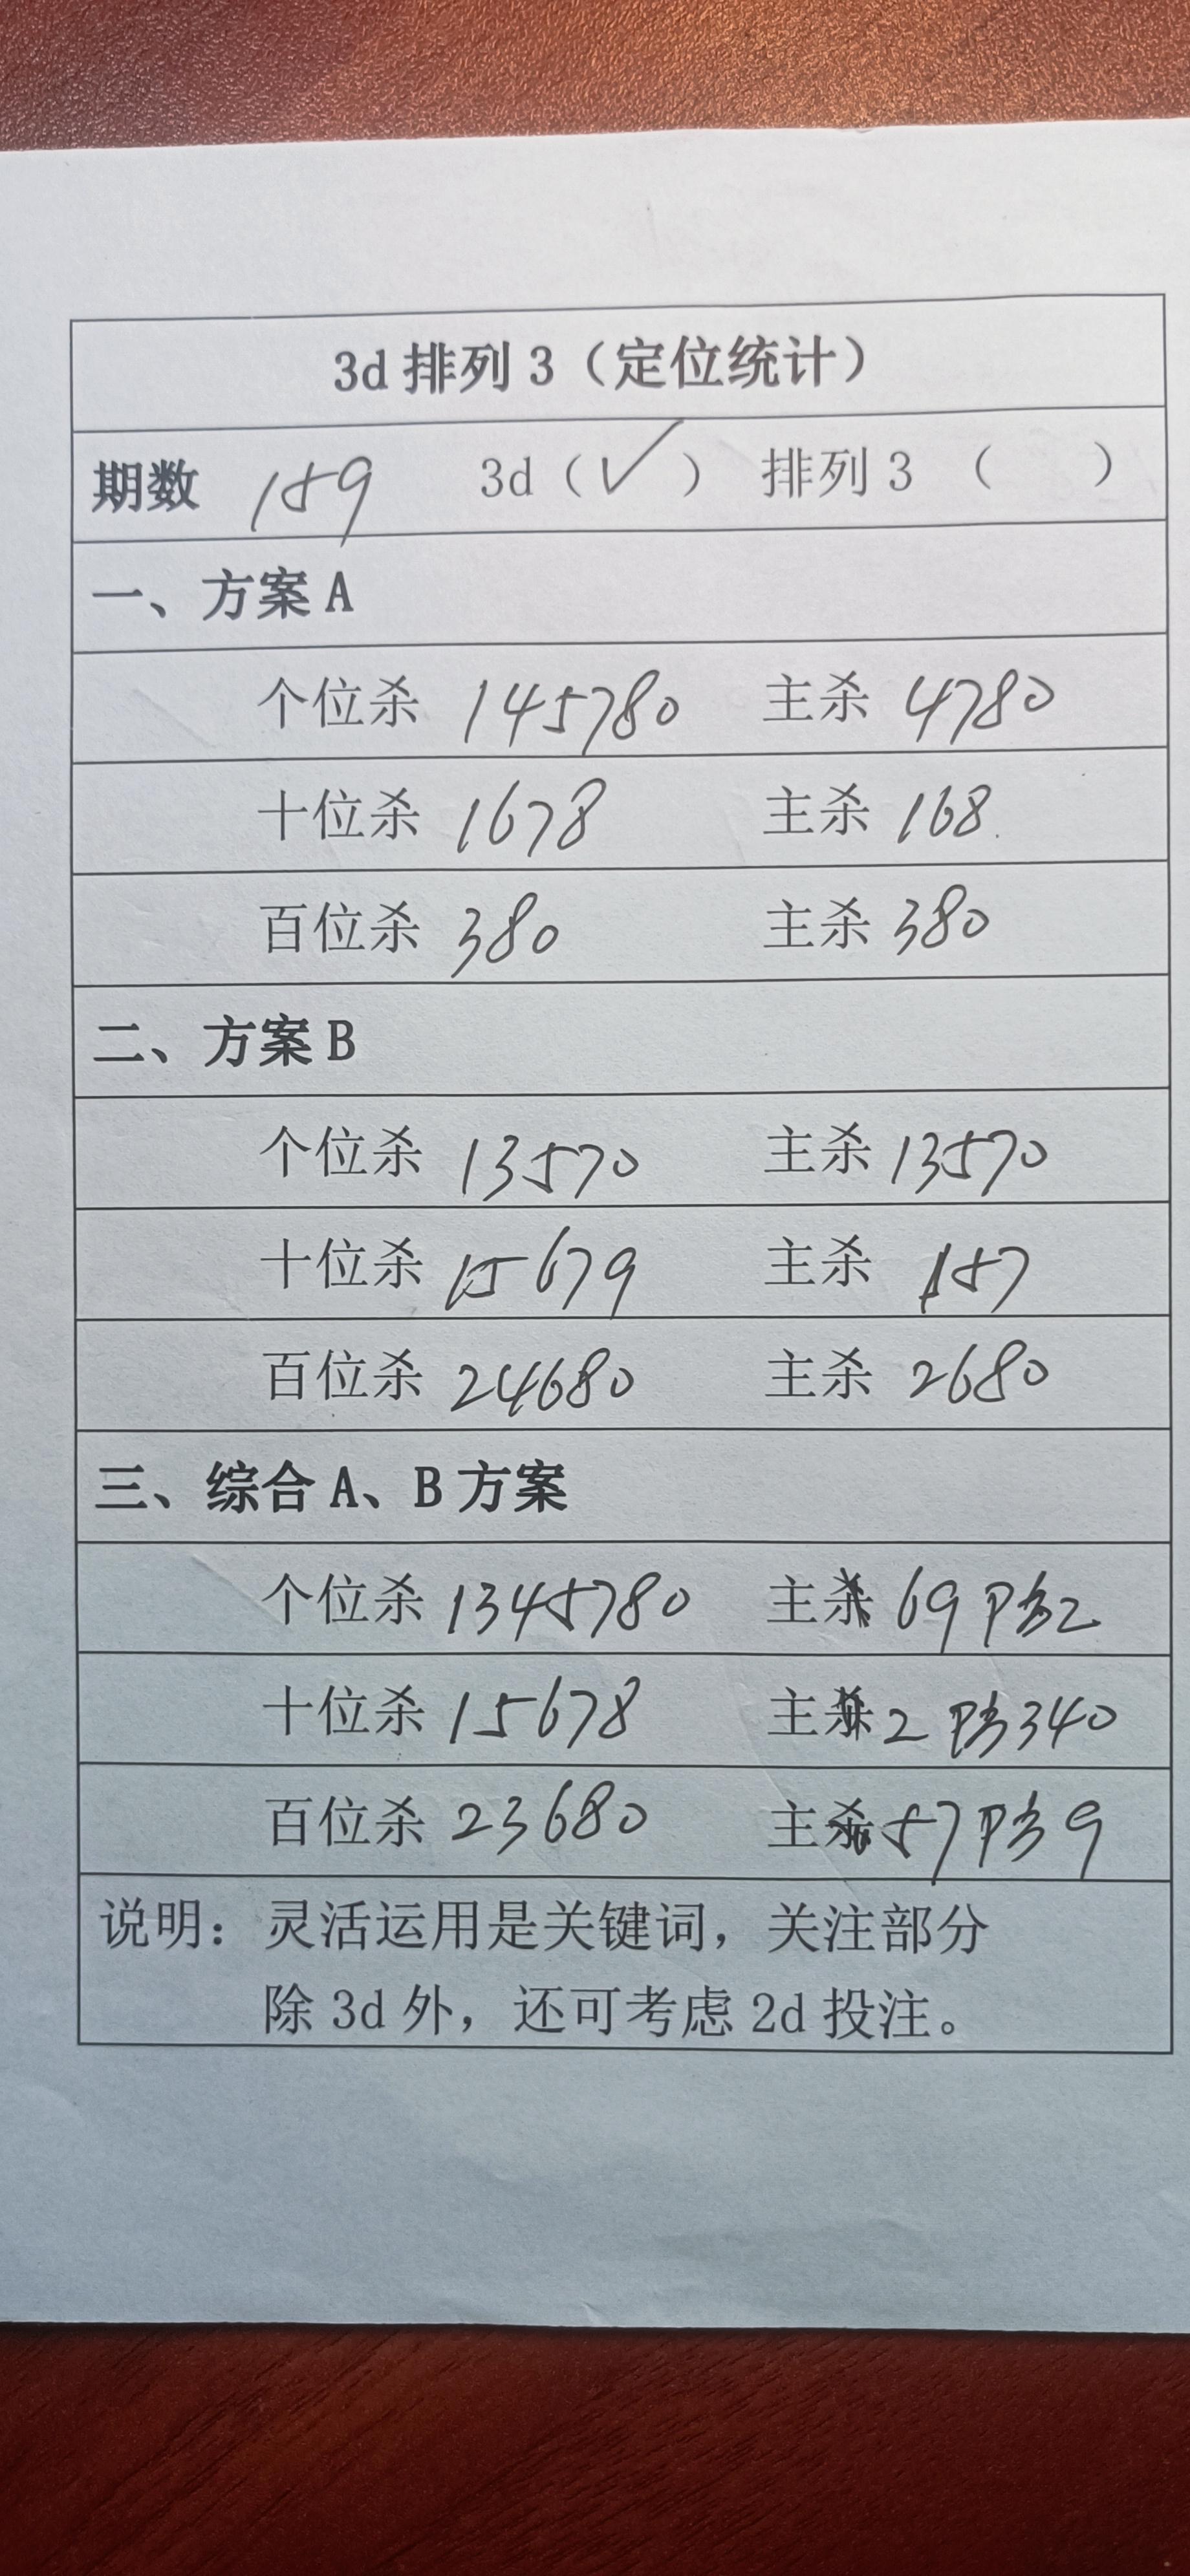 3d排列3（定位统计）
期数 159 3d（✓） 排列3（ ）
一、方案A
个位杀 145780 主杀 4780
十位杀 1678 主杀 168.
百位杀 380 主杀 380
二、方案B
个位杀 13570 主杀 13570
十位杀 15679 主杀 157
百位杀 24680 主杀 2680
三、综合A、B方案
个位杀 1345780 主 69防2
十位杀 15678 主 2防340
百位杀 23680 主 57防9
说明：灵活运用是关键词，关注部分
除3d外，还可考虑2d投注。